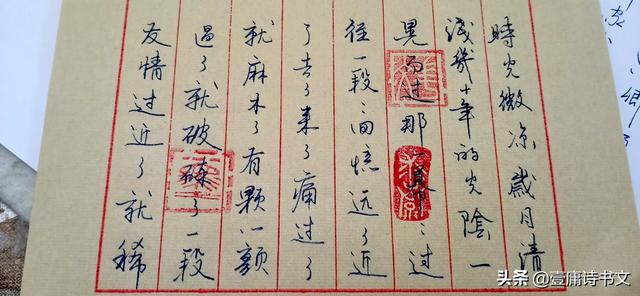 時光微凉歲月清
浅几十年的光陰一
晃而过那一段：过
往一段：回憶远了近
了去了来了痛过了
就麻木了有颗心额
过了就破碎了一段
友情过近了就稀
头条 @壹庸诗书文